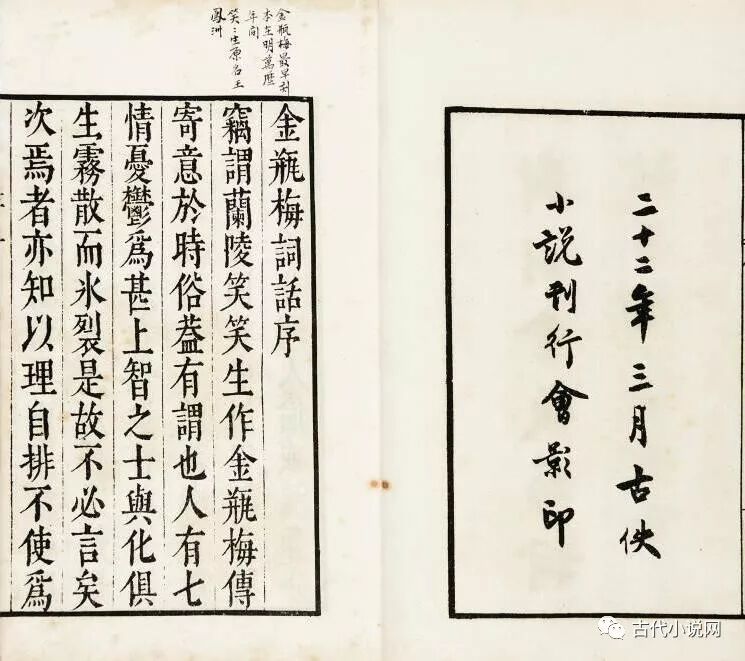 二十二年三月古佚
小說刊行會影印
金瓶梅最早刻
本在明萬歷
年间
笑〻生原名王
鳳洲
金瓶梅詞話序
竊謂蘭陵笑笑生作金瓶梅傳
寄意於時俗葢有謂也人有七
情憂鬱爲甚上智之士與化俱
生霧散而氷裂是故不必言矣
次焉者亦知以理自排不使爲
古代小说网